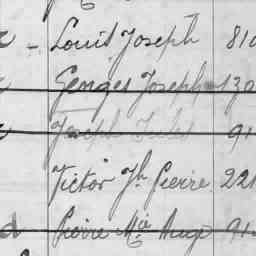 Louis Joseph 810
Georges Joseph 130
Joseph Jules 91
Victor Jh Pierre 221
Pierre Mie Aug 91